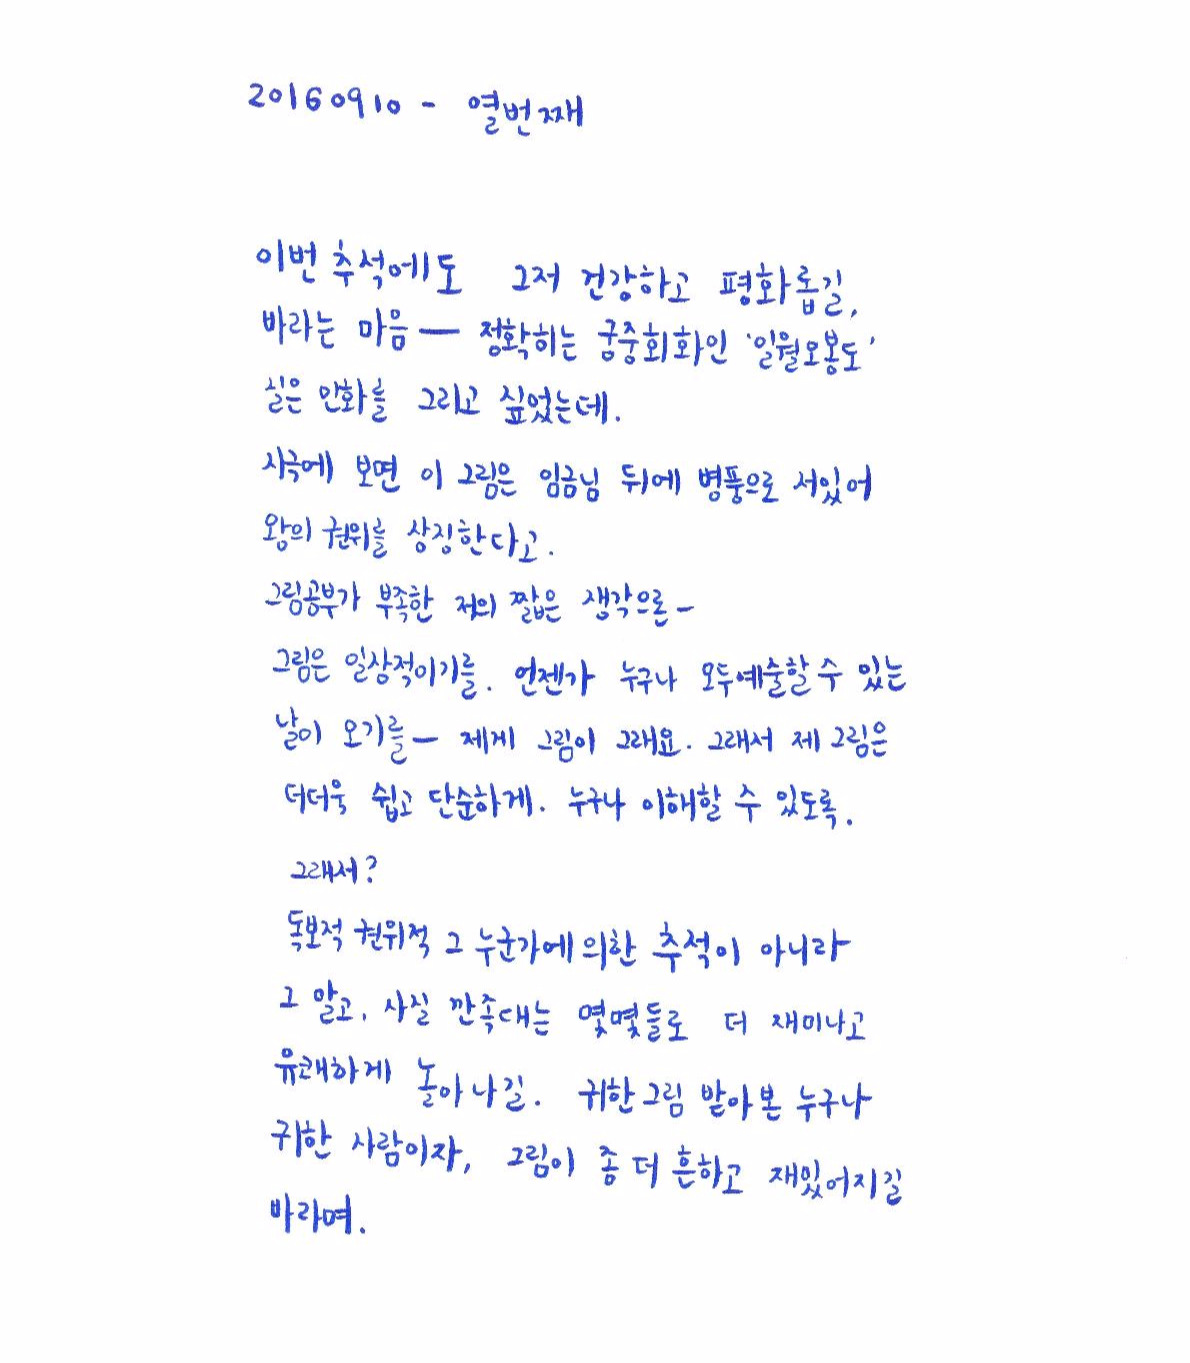 20160910 - 열번째
이번 추석에도 그저 건강하고 평화롭길,
바라는 마음 — 정확히는 궁중회화인 '일월오봉도'
실은 만화를 그리고 싶었는데.
사극에 보면 이 그림은 임금님 뒤에 병풍으로 서있어
왕의 권위를 상징한다고.
그림공부가 부족한 저의 짧은 생각으론 -
그림은 일상적이기를. 언젠가 누구나 모두예술할 수 있는
날이 오기를 — 제게 그림이 그래요. 그래서 제 그림은
더더욱 쉽고 단순하게. 누구나 이해할 수 있도록.
그래서?
독보적 권위적 그 누군가에 의한 추석이 아니라
그 말고, 사실 깐족대는 몇몇들로 더 재미나고
유쾌하게 놀아나길. 귀한 그림 받아 본 누구나
귀한 사람이자, 그림이 좀 더 흔하고 재밌어지길
바라며.